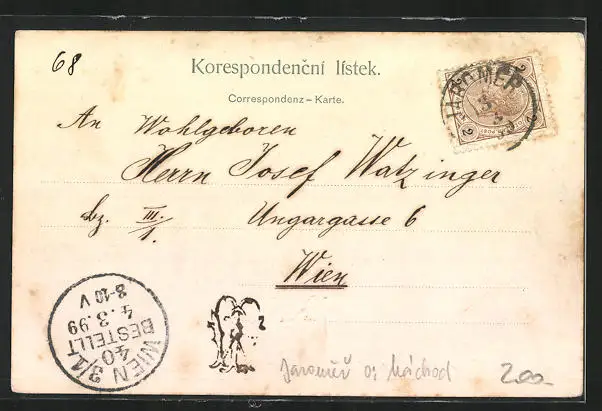 68
Korespondenční lístek.
Correspondenz – Karte.
JAROMĚŘ
2 2
An Wohlgeboren
Herrn Josef Watzinger
Bz. III./1. Ungargasse 6
Wien
WIEN 3/1
40
BESTELLT
4.3.99
8-10 V
Jaroměř o: Náchod
200